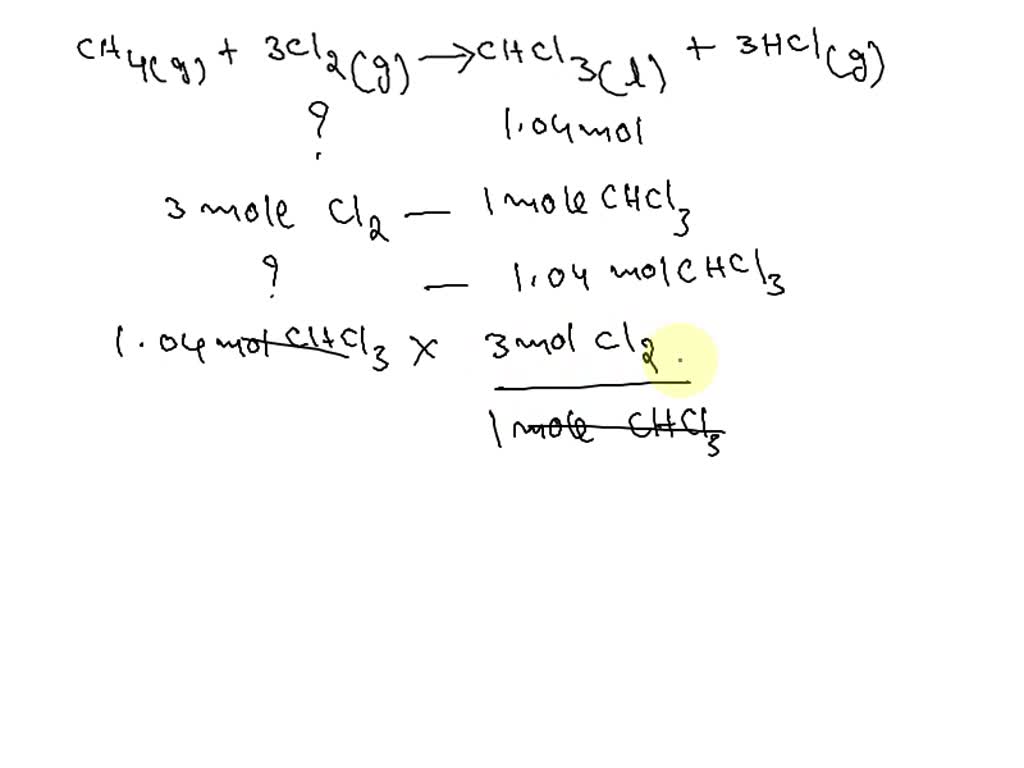 CH4(g) + 3Cl2(g) → CHCl3(l) + 3HCl(g)
? 1.04mol
3 mole Cl2 — 1 mole CHCl3
? — 1.04 mol CHCl3
1.04 mol CHCl3 × 3 mol Cl2
1 mole CHCl3